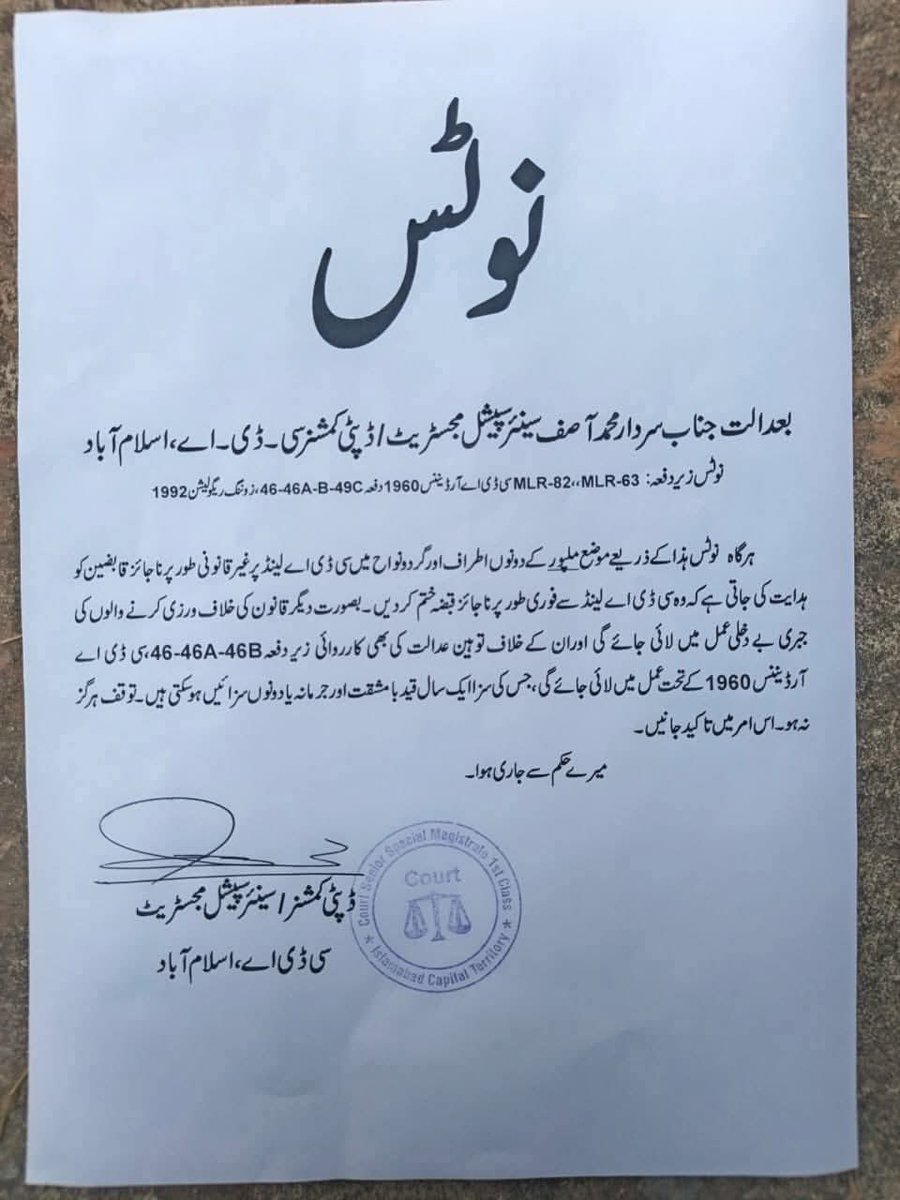 نوٹس
بعدالت جناب سردار محمد آصف سینئر سپیشل مجسٹریٹ / ڈپٹی کمشنر سی۔ڈی۔اے، اسلام آباد
نوٹس زیر دفعہ: MLR-82،،MLR-63 سی ڈی اے آرڈیننس 1960 دفعہ 46-46A-B-49C، زوننگ ریگولیشن 1992
ہرگاہ نوٹس ہذا کے ذریعے موضع ملپور کے دونوں اطراف اور گردونواح میں سی ڈی اے لینڈ پر غیر قانونی طور پر ناجائز قابضین کو
ہدایت کی جاتی ہے کہ وہ سی ڈی اے لینڈ سے فوری طور پر ناجائز قبضہ ختم کر دیں۔ بصورت دیگر قانون کی خلاف ورزی کرنے والوں کی
جبری بے دخلی عمل میں لائی جائے گی اور ان کے خلاف توہین عدالت کی بھی کارروائی زیر دفعہ 46-46A-46B، سی ڈی اے
آرڈیننس 1960 کے تحت عمل میں لائی جائے گی، جس کی سزا ایک سال قید با مشقت اور جرمانہ یا دونوں سزائیں ہوسکتی ہیں۔ توقف ہرگز
نہ ہو۔ اس امر میں تاکید جانیں۔
میرے حکم سے جاری ہوا۔
ڈپٹی کمشنر / سینئر سپیشل مجسٹریٹ
سی ڈی اے، اسلام آباد
Court Senior Special Magistrate 1st Class
Court
★ Islamabad Capital Territory ★